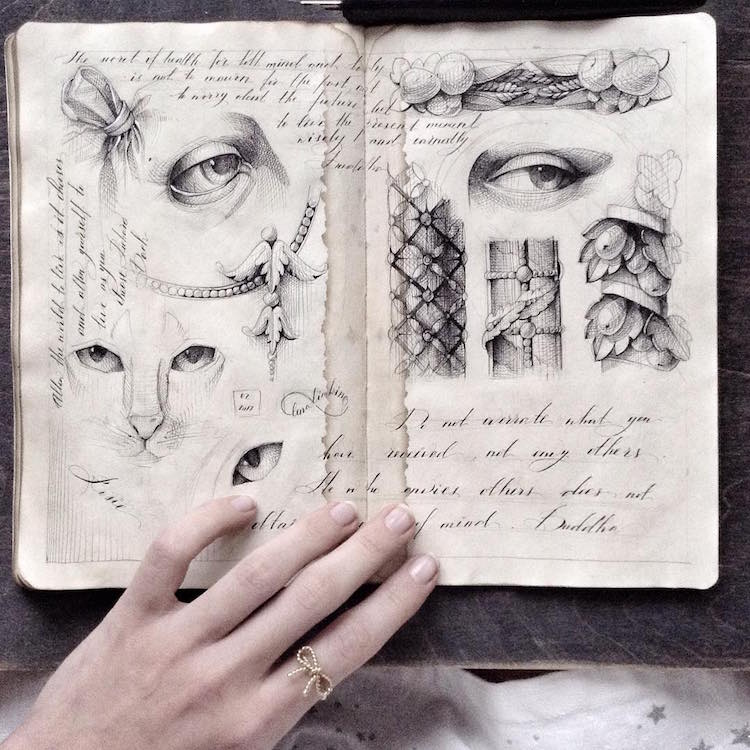 The secret of health for both mind and body
is not to mourn for the past, not
to worry about the future, but
to live the present moment
wisely and earnestly
Buddha
Allow the world to live as it chooses
and allow yourself to
live as you
choose
Do not overrate what you
have received, nor envy others.
He who envies others does not
of mind. Buddha